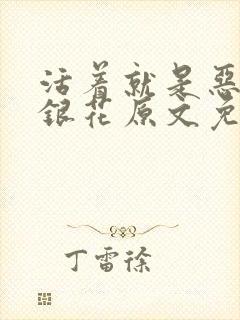 活着就是恶
银花原文免
丁雷徐